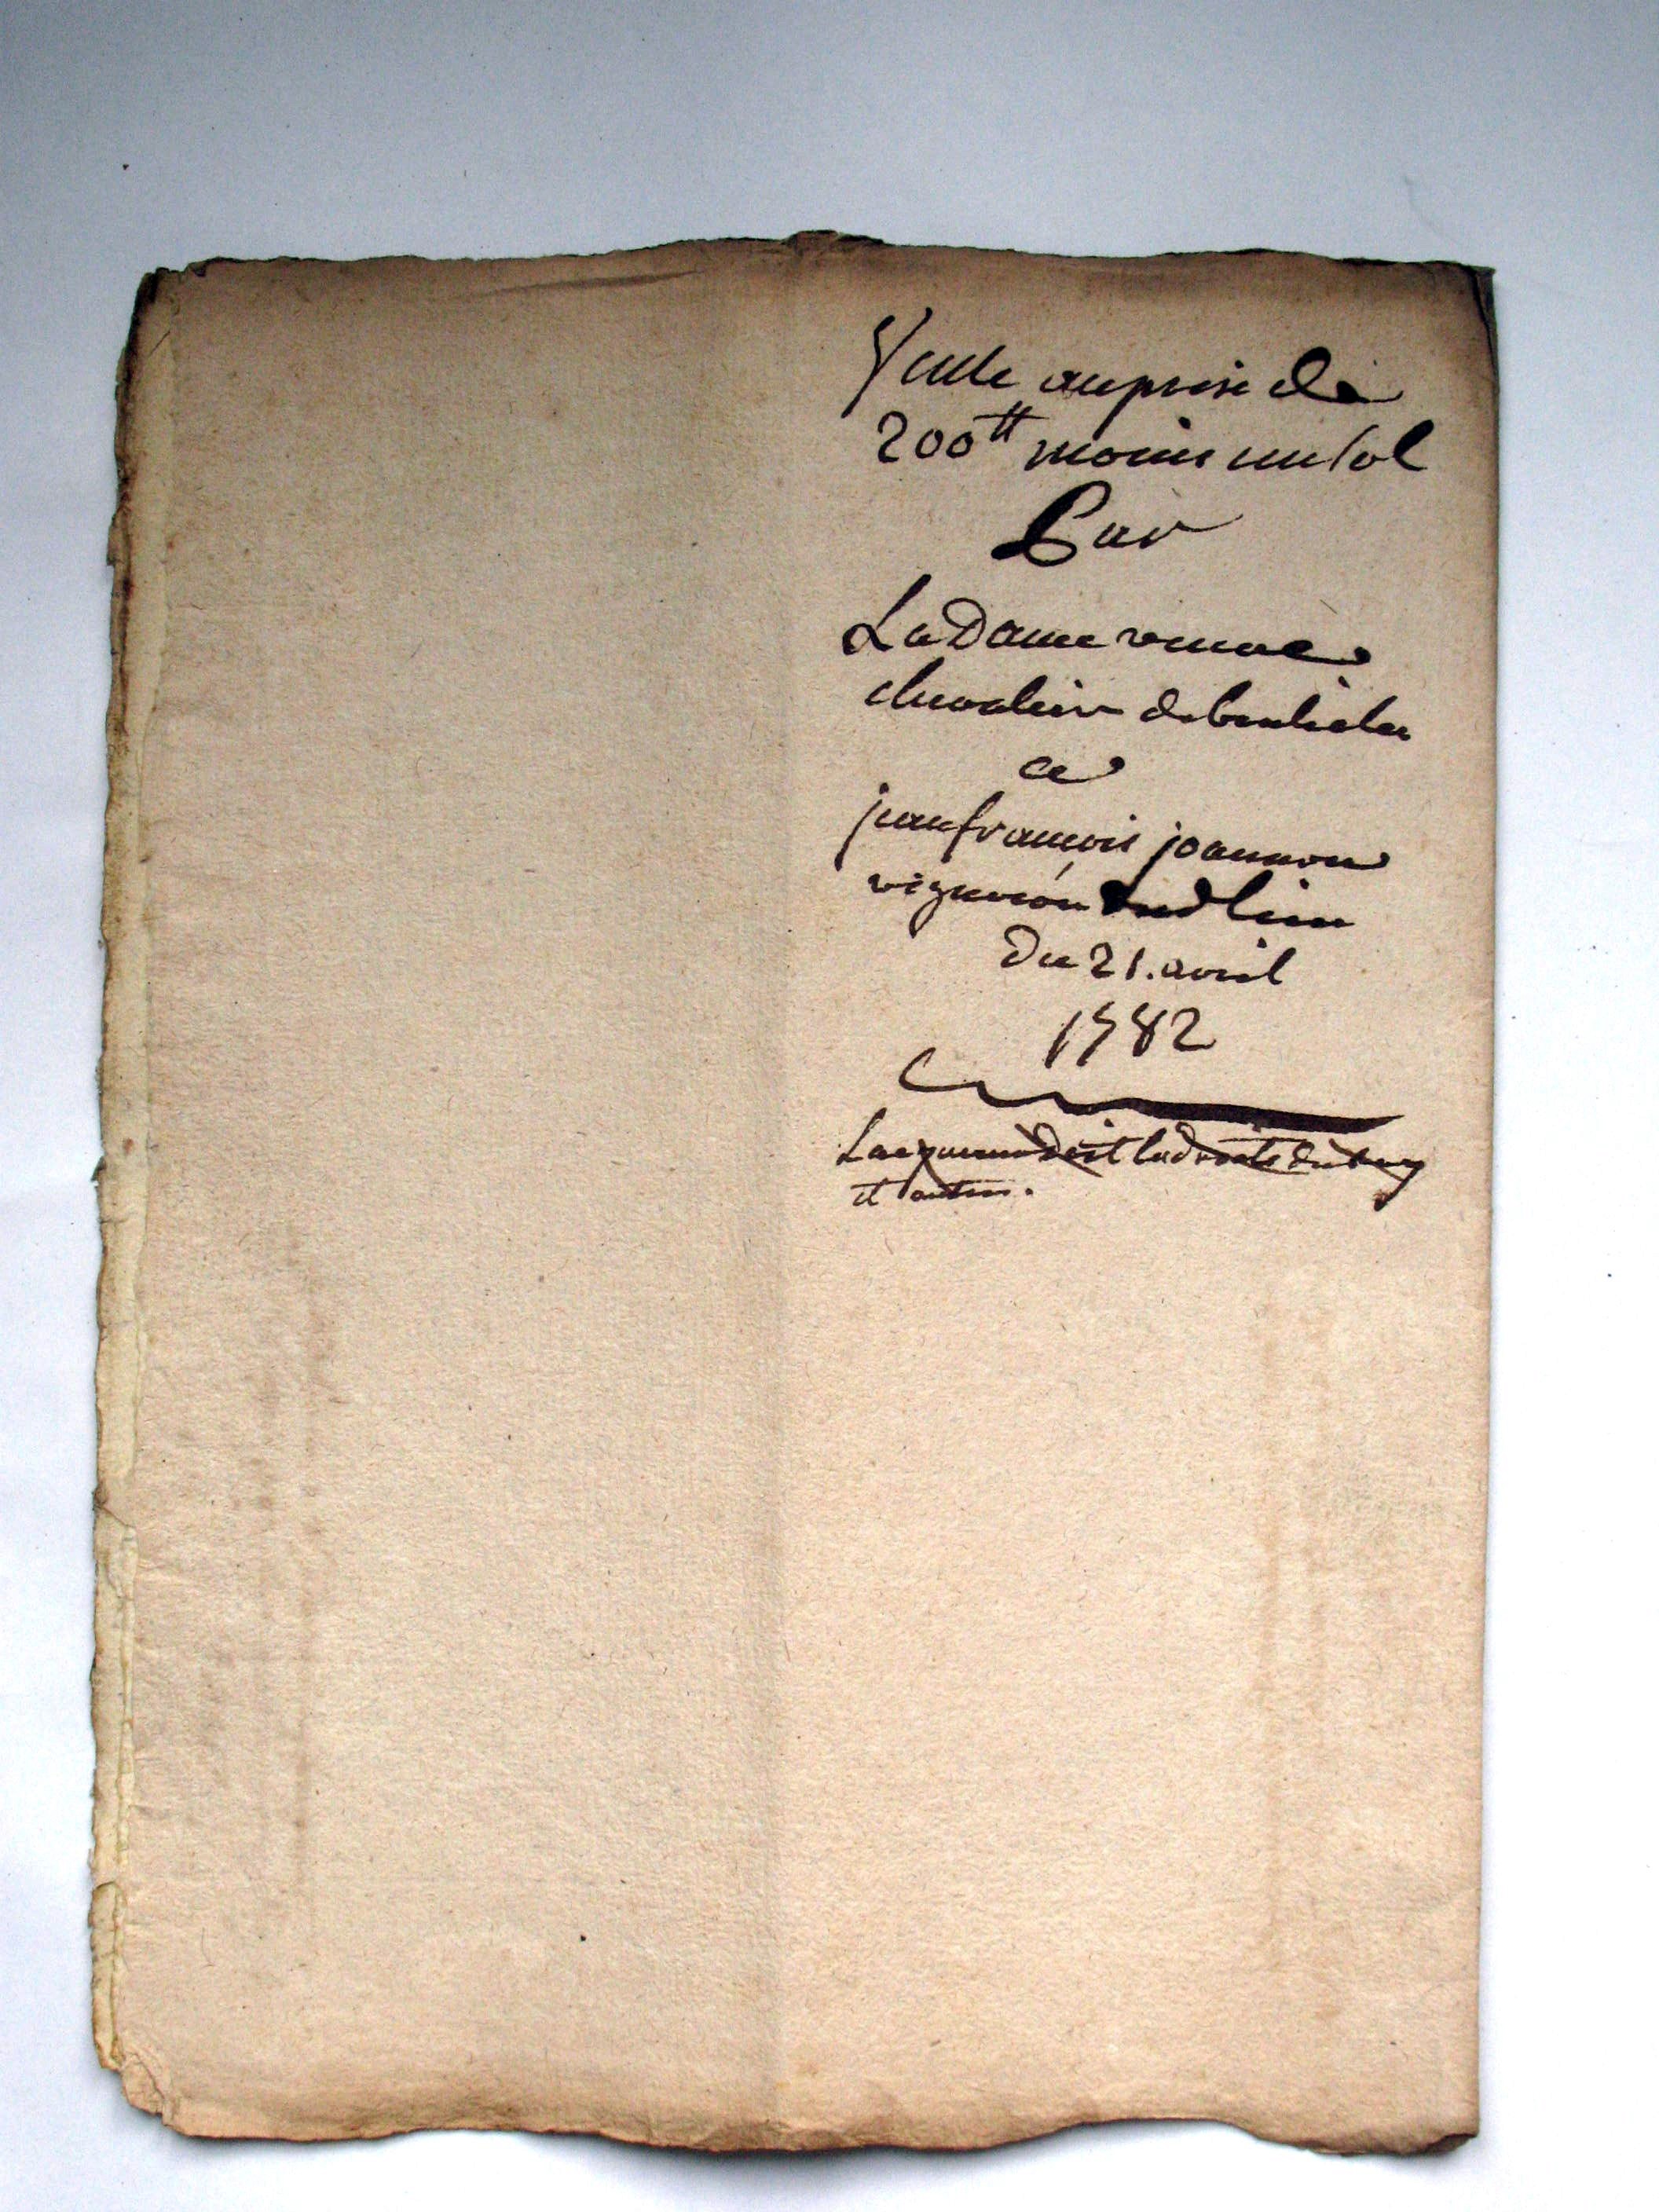 Vente au prix de
200tt moins un sol
Par
La Dame veuve
chevalier de
a
jean françois joannon
vigneron dud lieu
Du 21. avril
1782
doit la droits du
et autres.